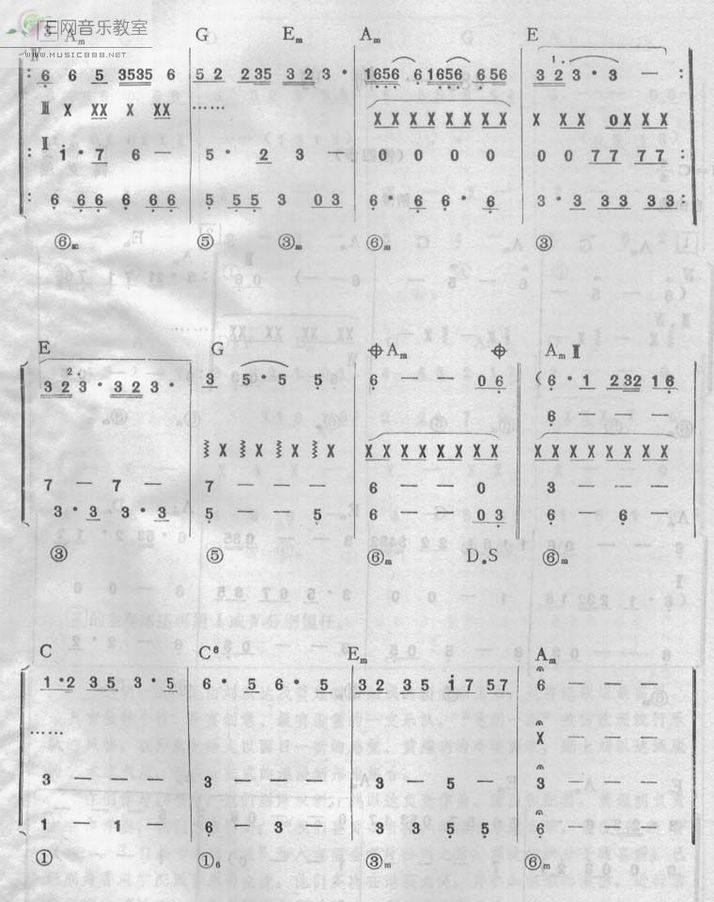 日网音乐教室
WWW.MUSIC888.NET
3 Am G Em Am E
Ⅳ
: 6 6 5 3535 6 | 5 2 235 323· | 1656 6 1656 656 | 1. 323·3 — :
Ⅲ X XX X XX | …… | X X X X X X X X | X XX 0X X X
Ⅱ : 1·7 6 — | 5· 2 3 — | 0 0 0 0 | 0 0 77 77 :
: 6 66 6 66 | 5 55 3 03 | 6·6 6·6 | 3·3 33 33 :
⑥m ⑤ ③m ⑥m ③
E G Am Am Ⅱ
2. 323·323· | 3 5·5 5 | 6 — — 06 | (6·1 232 16
6 — — —
X X X X | X X X X X X X X | X X X X X X X X
7 — 7 — | 7 — — — | 6 — — 0 | 3 — — —
3·3 3·3 | 5 — — 5 | 6 — — 03 | 6 — 6 —
③ ⑤ ⑥m D.S ⑥m
C C6 Em Am
1·2 35 3·5 | 6·5 6·5 | 32 35 17 57 | 6 — — —
…… X — — —
3 — — — | 3 — — — | 3 — 5 — | 3 — — —
1 — 1 — | 6 — 3 — | 3 3 5 5 | 6 — — —
① ①6 ③m ⑥m